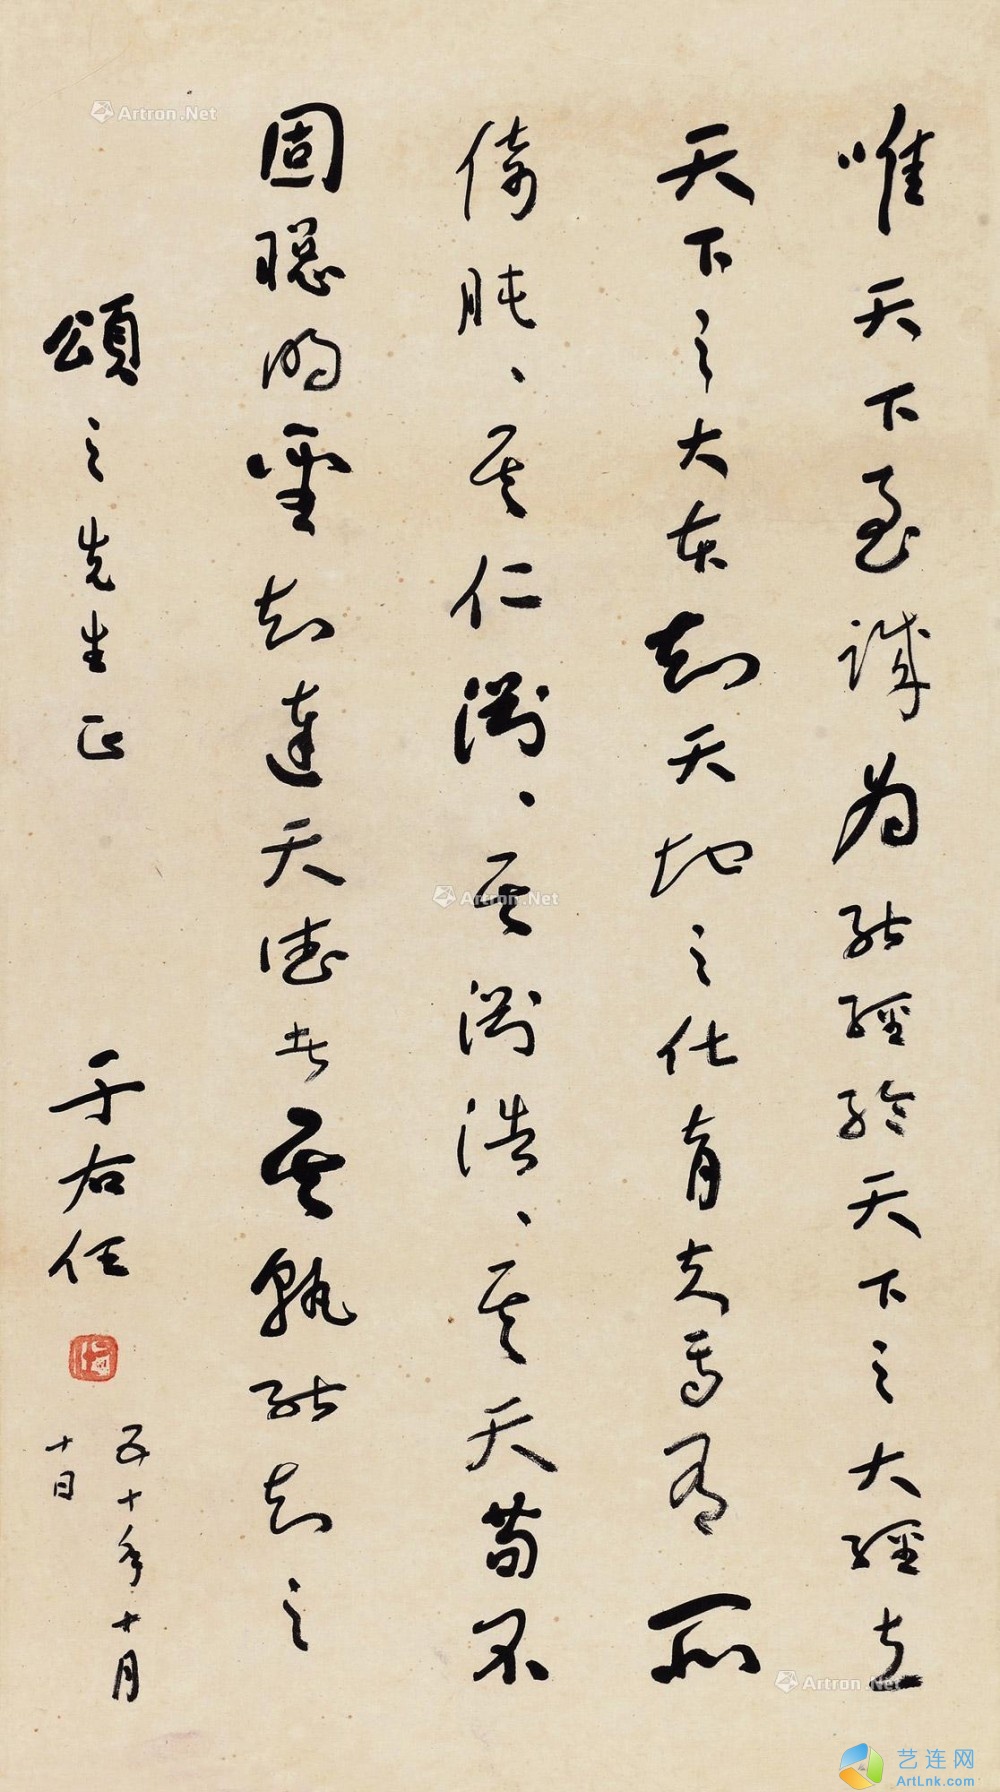 唯天下至誠為能經綸天下之大經立
天下之大本知天地之化育夫焉有所
倚肫、其仁淵、其淵浩、其天苟不
固聰明聖知達天德者其孰能知之
頌之先生正
于右任
右任
五十年十月
十日
Artron.Net
Artron.Net
Artron.Net
艺连网
ArtLnk.com